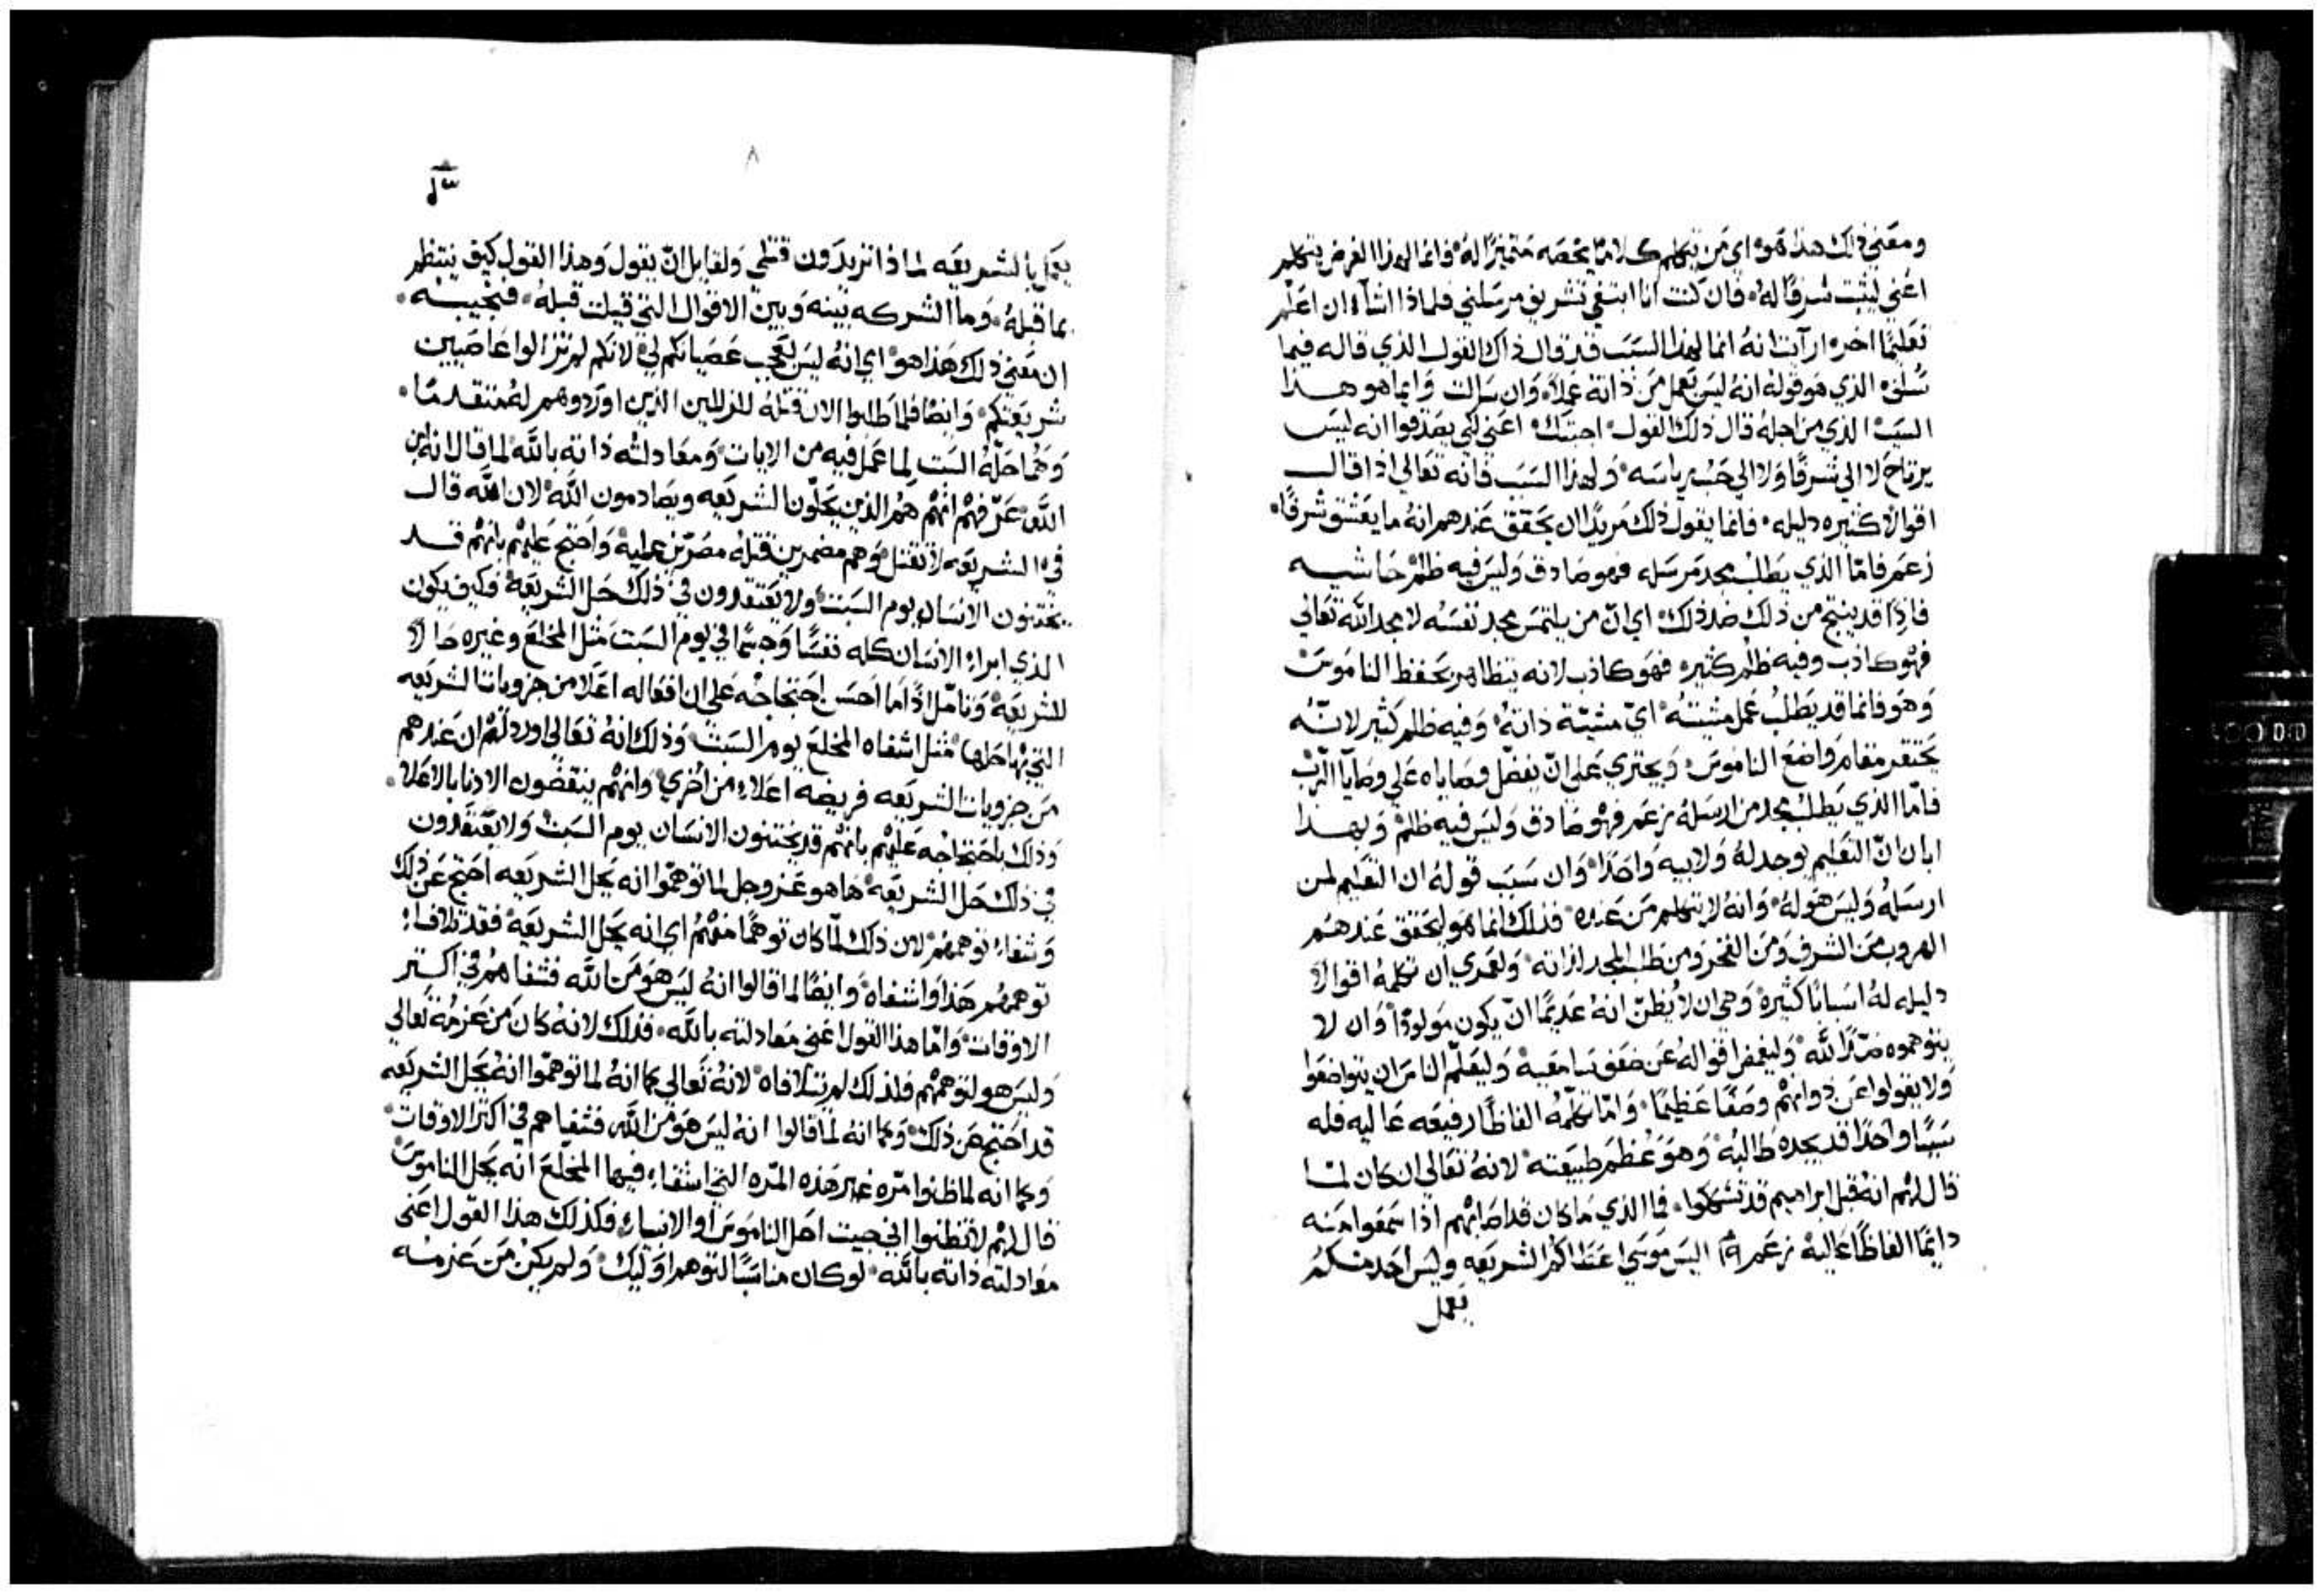 ومعني ذلك هذا هو اي من يتكلم كلامًا يخصه متميزًا له فانما لهذا الغرض يتكلم
اعني ليثبت شرفًا له فان كنت انا ابتغي تشريف مرسلني فلماذا اشاء ان اعلم
تعليمًا اخر ارآيت انه انما لهذا السبب قد قال ذاك القول الذي قاله فيما
سلف الذي هو قوله انه ليس يعمل من ذاته عملاً وان سالت وايما هو هذا
السبب الذي من اجله قال ذلك القول اجبتك اعني لكي يصدقوا انه ليس
يرتاح لا الي شرفًا ولا الي حب رياسه ولهذا السبب فانه تعالي اذا قال
اقوالاً كثيره دليله فانما يقول ذلك مريدًا ان يحقق عندهم انه ما يعشق شرفًا
زعمر فامّا الذي يطلب مجد مرسله فهو صادق وليس فيه ظلم حاشيه
فاذًا قد ينتج من ذلك ضد ذلك اي انّ من يلتمس مجد نفسه لا مجد الله تعالي
فهو كاذب وفيه ظلم كثير فهو كاذب لانه يتظاهر بحفظ الناموس
وهو فانما قد يطلب عمل مشيته اي مشيّة ذاته وفيه ظلم كثير لانّه
يحتقر مقام واضع الناموس ويجتري علي انّ يفضل وصاياه علي وصايا الربّ
فامّا الذي يطلب مجد من ارسله زعم فهو صادق وليس فيه ظلم وبهذا
ابان انّ التعليم يوجد له ولابيه واحدًا وان سبب قوله ان التعليم لمن
ارسله وليس هو له وانه لا يتكلم من عنده فذلك انما هو ليحقق عندهم
الهروب من الشرف ومن الفخر ومن طلب المجد لذاته ولعمري ان تكلمه اقوالاً
دليله له اسبابًا كثيرة وهي ان لا يظنّ انه عديمًا انّ يكون مولودًا وان لا
يتوهموه ضدًا لله وليغمض اقواله عن ضعف سامعيه وليعلّم الناس ان يتواضعوا
ولا يقولوا عن ذواتهم وصفًا عظيمًا وامّا تكلّمه الفاظًا رفيعه عاليه فله
سببًا واحدًا قد يجده طالبه وهو عظم طبيعته لانه تعالي ان كان لما
قال لهم انه قبل ابراهيم قد تشككوا فما الذي ما كان قد اصابهم اذا سمعوا منه
دايمًا الفاظًا عالية زعم ١٩ اليس موسي اعطاكم الشريعه وليس احد منكم
يعمل
٨
يعمل بالشريعه لماذا تريدون قتلي ولقايل انّ يقول وهذا القول كيف ينتظم
بما قبله وما الشركه بينه وبين الاقوال التي قيلت قبله فنجيبه
ان معني ذلك هذا هو اي انه ليس بعجب عصيانكم لي لانكم لم تزالوا عاصيين
شريعتكم وايضًا فلما طلبوا الان قتله للزللين الذين اوردوهم له متقدمًا
وهما حلّه السبت لما عمل فيه من الايات ومعادلته ذاته بالله لما قال انه ابن
الله عرّفهم انهم هم الذين يحلّون الشريعه ويصادمون الله لان الله قال
في الشريعه لا تقتل وهم مضمرين قتله مصرّين عليه واحتج عليهم بانهم قد
يختنون الانسان يوم السبت ولا يعتقدون في ذلك حل الشريعة فكيف يكون
الذي ابراء الانسان كله نفسًا وجسمًا في يوم السبت مثل المخلع وغيره حالاً
للشريعة وتامّل اذًا ما احسن احتجاجه علي ان افعاله اعلا من جزويات الشريعه
التي بها حلها مثل اشفاه المخلع يوم السبت وذلك انه تعالي اورد لهم ان عندهم
من جزويات الشريعه فريضه اعلاء من اخري وانهم ينقضون الادنا بالاعلا
وذلك باحتجاجه عليهم بانهم قد يختنون الانسان يوم السبت ولا يعتقدون
في ذلك حل الشريعه ها هو عز وجل لما توهموا انه يحل الشريعه احتج عن ذلك
وشفاء توهمهم لان ذلك لمّا كان توهمًا منهم اي انه يحل الشريعة فقد تلافاء
توهمهم هذا واشفاه وايضًا لما قالوا انه ليس هو من الله فشفاهم في اكثر
الاوقات وامّا هذا القول اعني معادلته بالله فذلك لانه كان من عزمه تعالي
وليس هو لتوهمهم فلذلك لم يتلافاه لانه تعالي كما انه لما توهموا انه يحل الشريعه
قد احتج عن ذلك وكما انه لما قالوا انه ليس هو من الله فشفاهم في اكثر الاوقات
وكما انه لما ظنوا مرّه غير هذه المرّه التي اشفاء فيها المخلّع انه يحل الناموس
قال لهم لا تظنوا اني جيت احل الناموس او الانبياء فكذلك هذا القول اعني
معادلته ذاته بالله لو كان مناسبًا لتوهم اوليك ولم يكن من عزمه